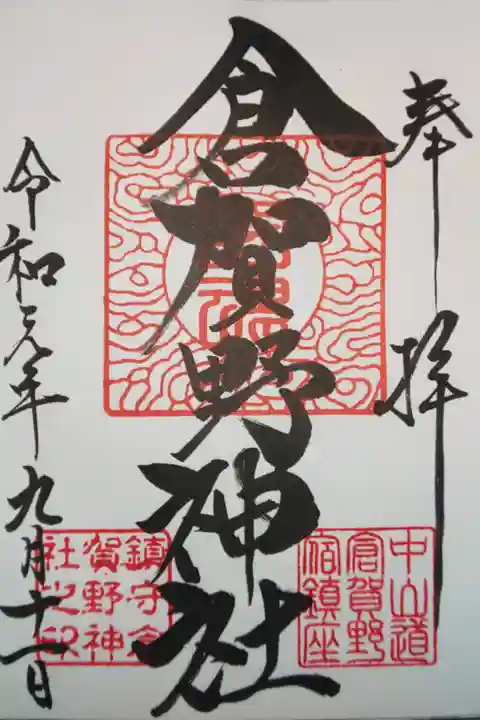 奉拝
倉賀野神社
令和元年九月十一日
中山道
倉賀野
宿鎮座
鎮守倉
賀野神
社之印